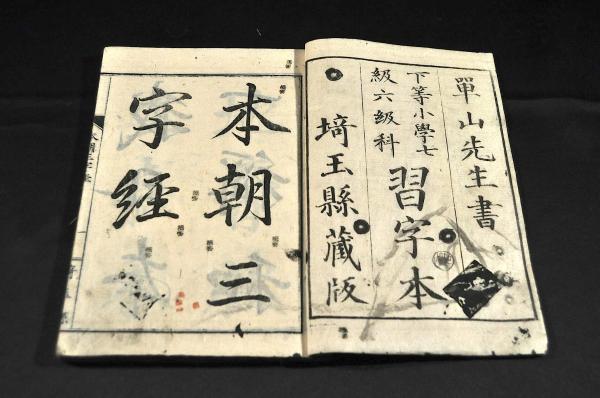 單山先生書
下等小學七
級六級科
習字本
埼玉縣藏版
本朝三
字経